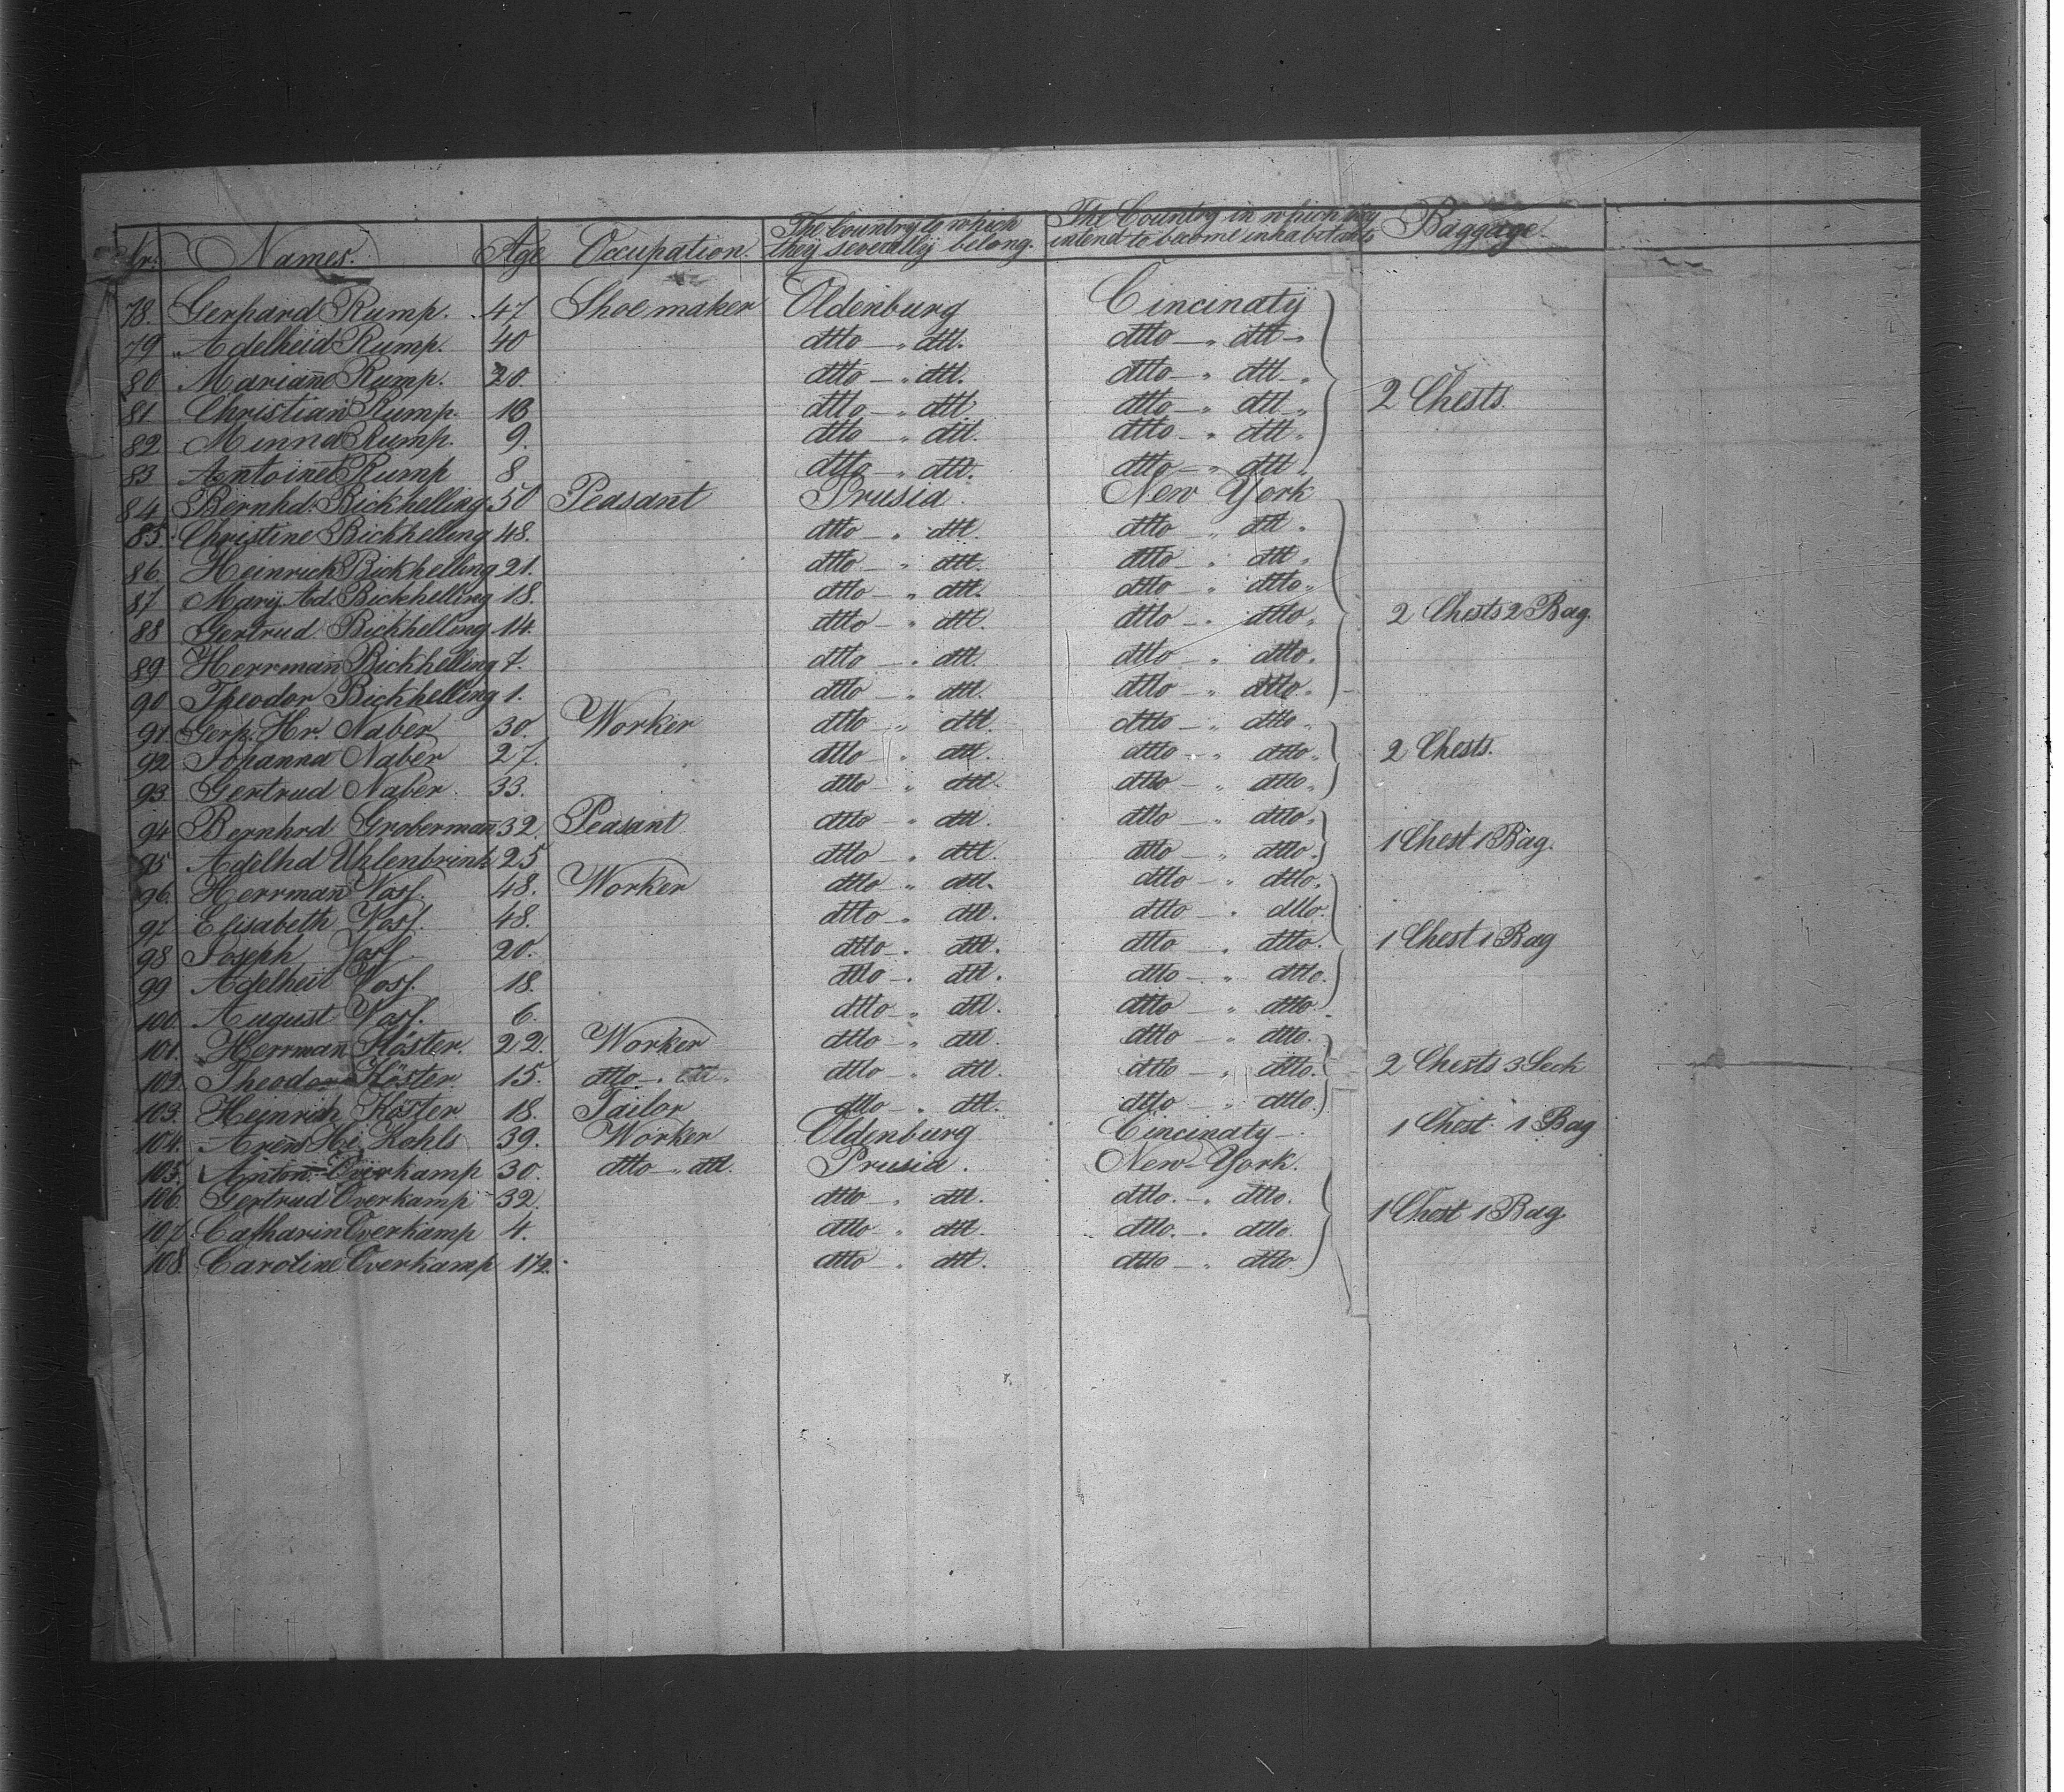 Nr. Names. Age Occupation. The Country to which they severally belong. The Country in which they intend to become inhabitants Baggage.
78. Gerhard Rump. 47 Shoemaker Oldenburg Cincinaty
79 Adelheid Rump. 40 dtto — " dtt. dtto — " dtt — "
80 Mariañe Rump. 20. dtto — " dtt. dtto — " dtt — "
81 Christian Rump. dtto — " dtt. dtto — " dtt — " 2 Chests.
82 Minna Rump. 9. dtto — " dtt. dtto — " dtt "
83 Antoinet Rump 8 dtto — " dtt. dtto — " dtt "
84 Bernhd. Bickhelling 50 Peasant Prusia. New York
85. Christine Bickhelling 48. dtto — " dtt. dtto — " dtt "
86. Heinrich Bickhelling 21. dtto — " dtt. dtto — " dtt "
87 Marÿ Ad. Bickhelling 18. dtto — " dtt. dtto — " dtto "
88 Gertrud Bickhelling 14. dtto — " dtt. dtto — " dtto " 2 Chests 2 Bag.
89 Herrmañ Bickhelling 7. dtto — " dtt. dtto — " dtto "
90 Theodor Bickhelling 1. dtto — " dtt. dtto — " dtto "
91. Gerh. Hr. Naber 30. Worker dtto — " dtt. dtto — " dtto "
92 Johanna Naber 27. dtto — " dtt. dtto — " dtto " 2 Chests.
93 Gertrud Naber 33. dtto — " dtt. dtto — " dtto "
94 Bernhrd Grobermañ 32. Peasant dtto — " dtt. dtto — " dtto "
95 Adelhd Uhlenbrink 25 dtto — " dtt. dtto — " dtto. 1 Chest 1 Bag.
96. Herrmañ Voss. 48. Worker dtto " dtt. dtto — " dtto "
97 Elisabeth Voss. 48. dtto — " dtt. dtto — " dtto.
98 Joseph Voss 20. dtto — " dtt. dtto — " dtto. 1 Chest 1 Bag
99 Adelheit Voss. 18. dtto — " dtt. dtto — " dtto.
100. August Voss. 6. dtto — " dtt. dtto — " dtto.
101. Herrmañ Köster. 22. Worker dtto — " dtt. dtto — " dtto.
102. Theodor Köster. 15. dtto — " dtt " dtto — " dtt. dtto — " dtto. 2 Chests 3 Seck
103. Heinrich Köster 18. Tailor dtto — " dtt. dtto — " dtto.
104. Hi. Kohls 39. Worker Oldenburg Cincinaty — 1 Chest. 1 Bag
105. Anton Overkamp 30. dtto — " dtt. Prusia. New-York.
106. Gertrud Overkamp 32. dtto — " dtt. dtto. — " dtto.
107. Catharin Overkamp 4. dtto — " dtt. dtto. — " dtto. 1 Chest 1 Bag
108. Caroline Overkamp 1½. dtto — " dtt. dtto — " dtto.